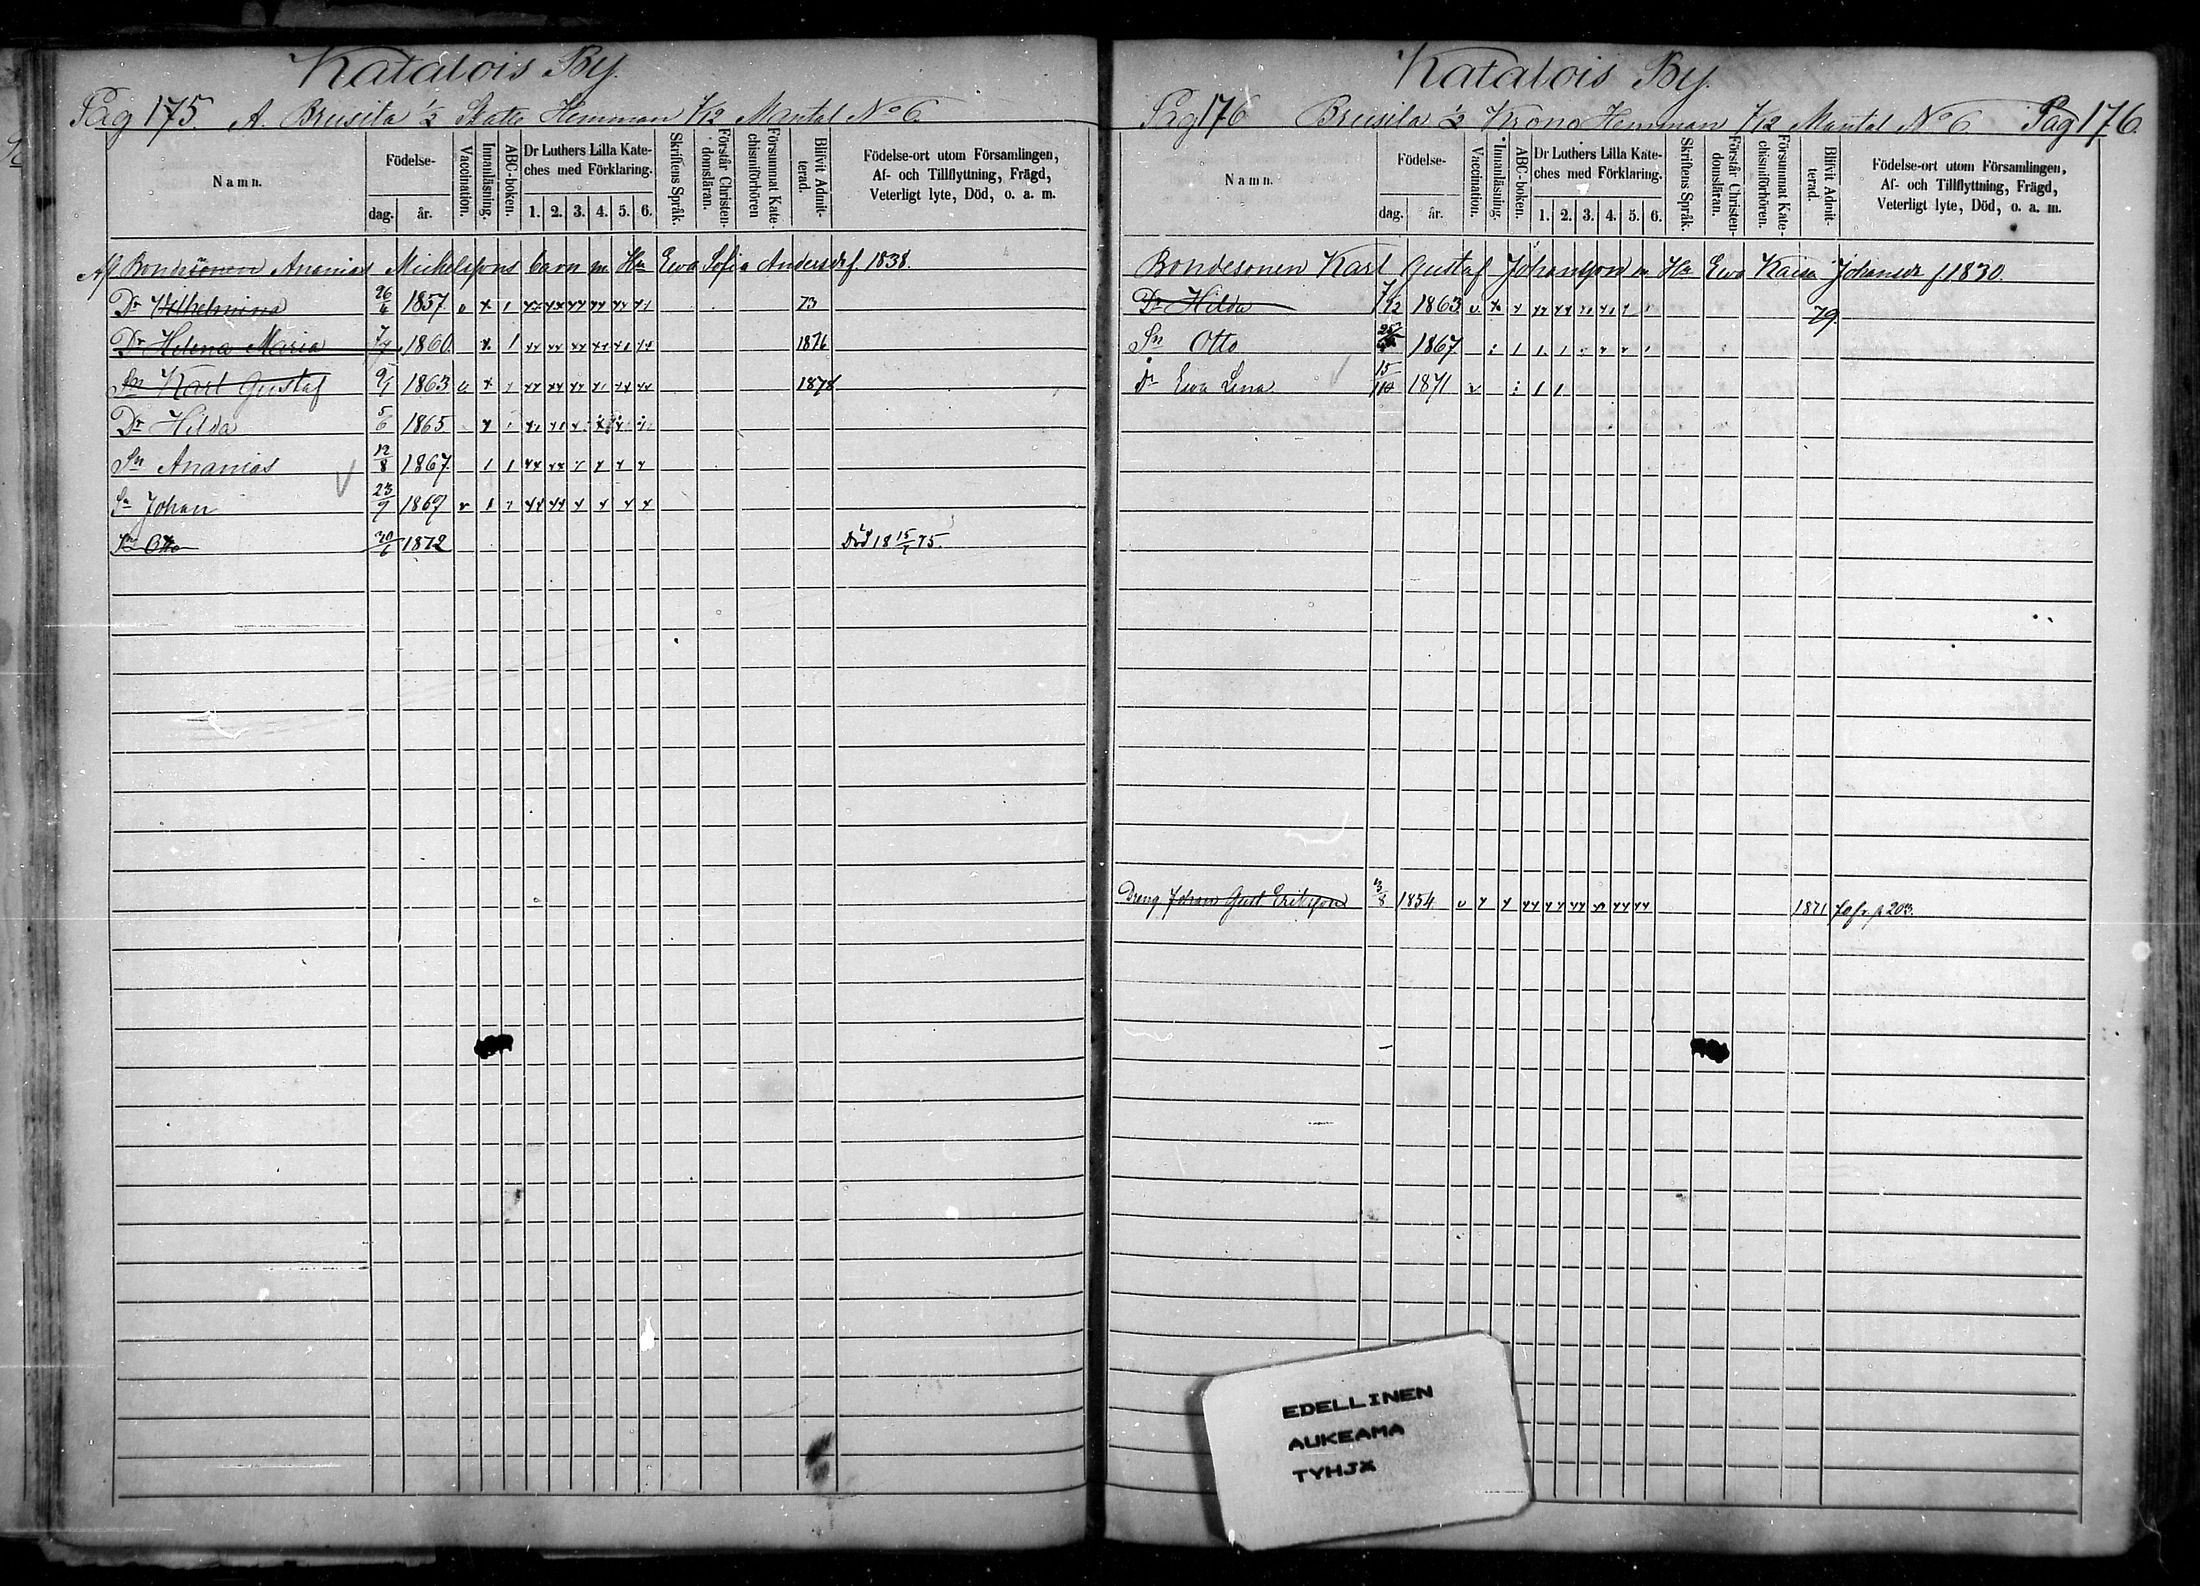 Katalois By.
Pag 175. A. Brusila 1/2 Skatte Hemman 7/12 Mantal No 6.
Namn.
Födelse-
dag. år.
Vaccination.
Innanläsning.
ABC-boken.
Dr Luthers Lilla Kate-
ches med Förklaring.
1. 2. 3. 4. 5. 6.
Skriftens Språk.
Förstår Christen-
domsläran.
Försummat Kate-
chismiförhören
Blifvit Admit-
terad.
Födelse-ort utom Församlingen,
Af- och Tillflyttning, Frägd,
Veterligt lyte, Död, o. a. m.
Af Bondesonen Ananias Michelssons barn m Hu Ewa Sofia Andersdr f 1838.
Dr Wilhelmina 26/6 1857 73
Dr Helena Maria 7/7 1860 1876
Sn Karl Gustaf 9/1 1863 1878
Dr Hilda 5/6 1865
Sn Ananias 12/8 1867
Sn Johan 23/9 1869
Sn Otto 30/6 1872 Död 18 15/7 75.
Katalois By.
Pag 176 Brusila 1/2 Krono Hemman 7/12 Mantal No 6 Pag 176.
Namn.
Födelse-
dag. år.
Vaccination.
Innanläsning.
ABC-boken.
Dr Luthers Lilla Kate-
ches med Förklaring.
1. 2. 3. 4. 5. 6.
Skriftens Språk.
Förstår Christen-
domsläran.
Försummat Kate-
chismiförhören.
Blifvit Admit-
terad.
Födelse-ort utom Församlingen,
Af- och Tillflyttning, Frägd,
Veterligt lyte, Död, o. a. m.
Bondesonen Karl Gustaf Johansson m Hu Ewa Kaisa Johansdr f 1830.
Dr Hilda 7/12 1863 79.
Sn Otto 1867
Dr Ewa Lena 15/10 1871
Dreng Johan Gust Eriksson 3/8 1854 1871 p 203.
EDELLINEN
AUKEAMA
TYHJÄ